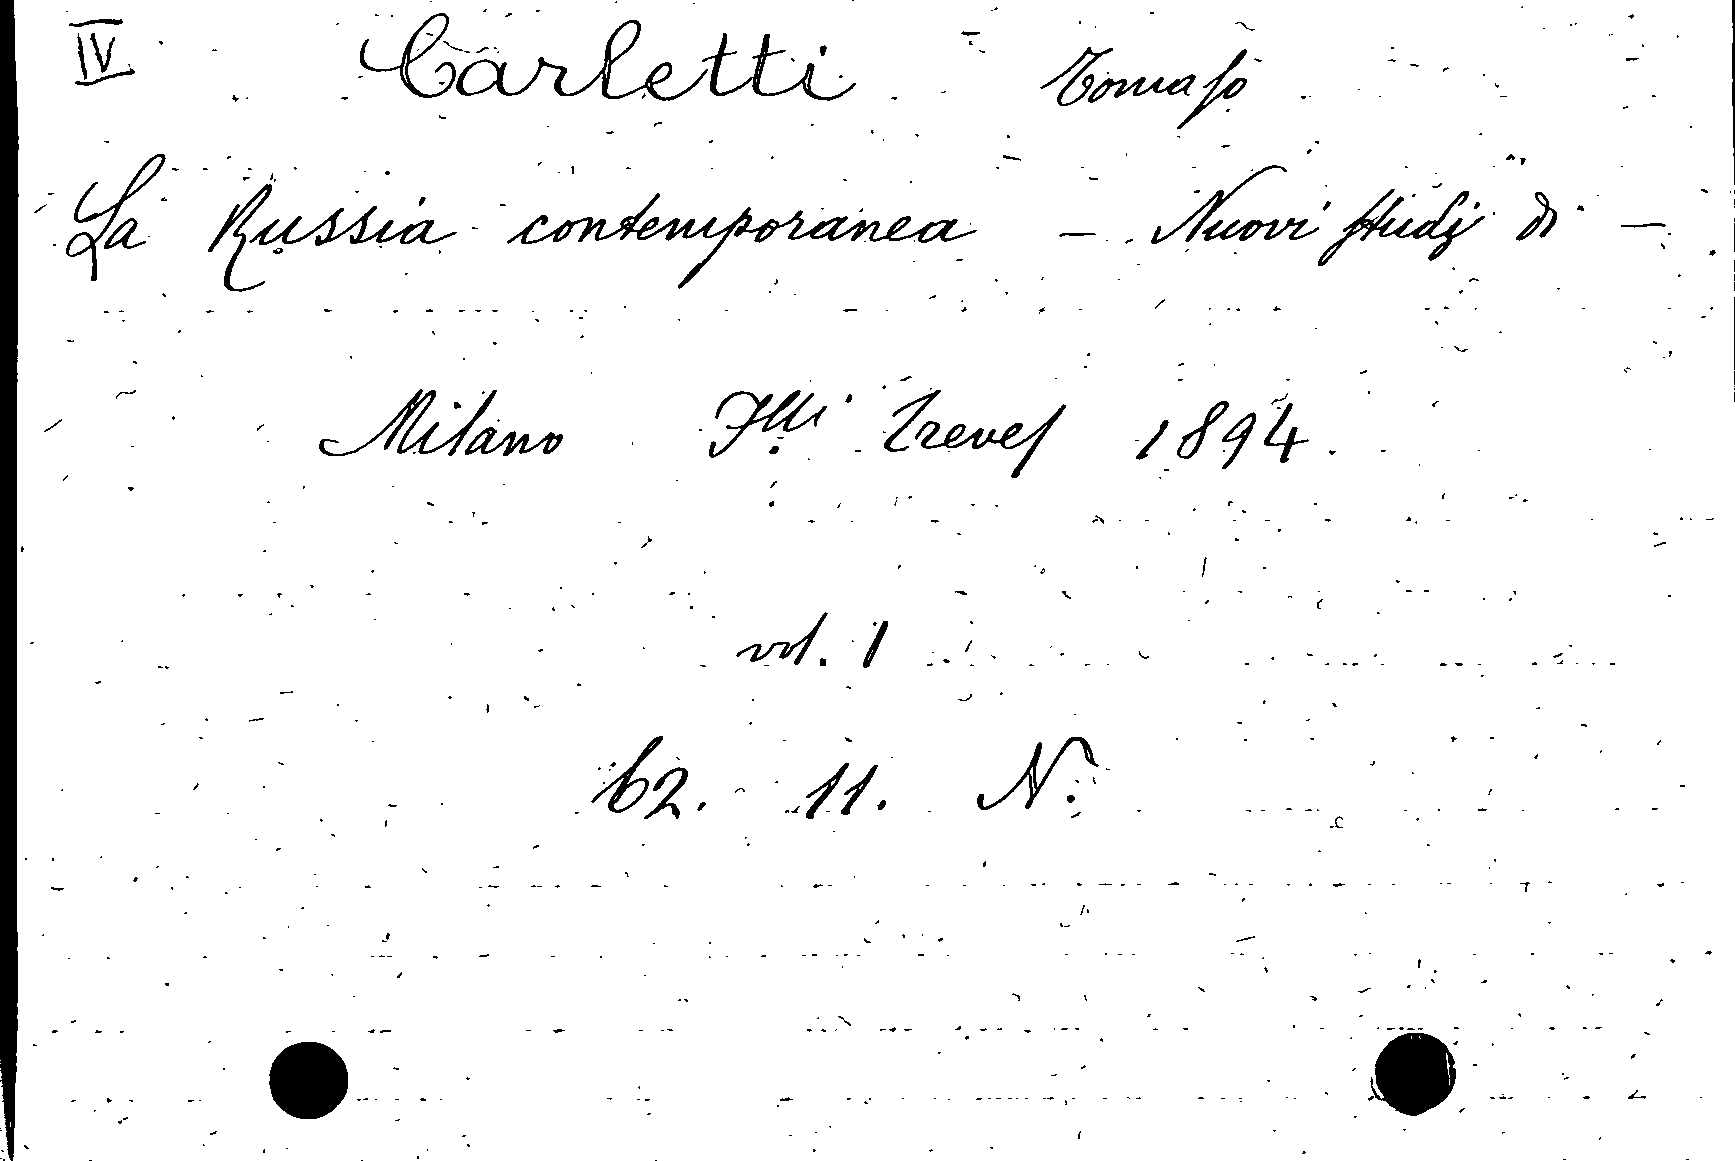 IV Carletti Tomaso
La Russia contemporanea – Nuovi studj di –
Milano Flli Treves 1894.
vol. 1
62. 11. N.